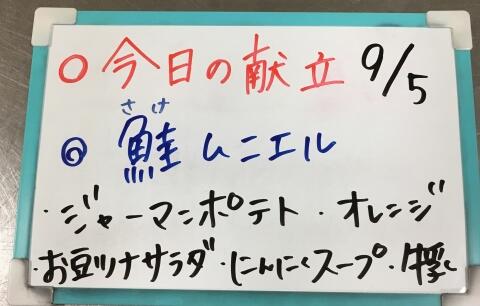 ○今日の献立 9/5
◎ 鮭 ムニエル
さけ
・ジャーマンポテト・オレンジ
・お豆ツナサラダ・にんにくスープ・牛乳